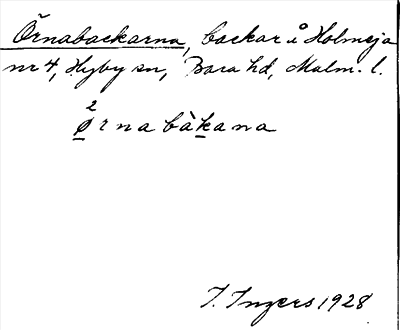 Örnabackarna, backar å Holmeja
nr 4, Hyby sn, Bara hd, Malm. l.
2
ørnabàkana
I. Ingers 1928